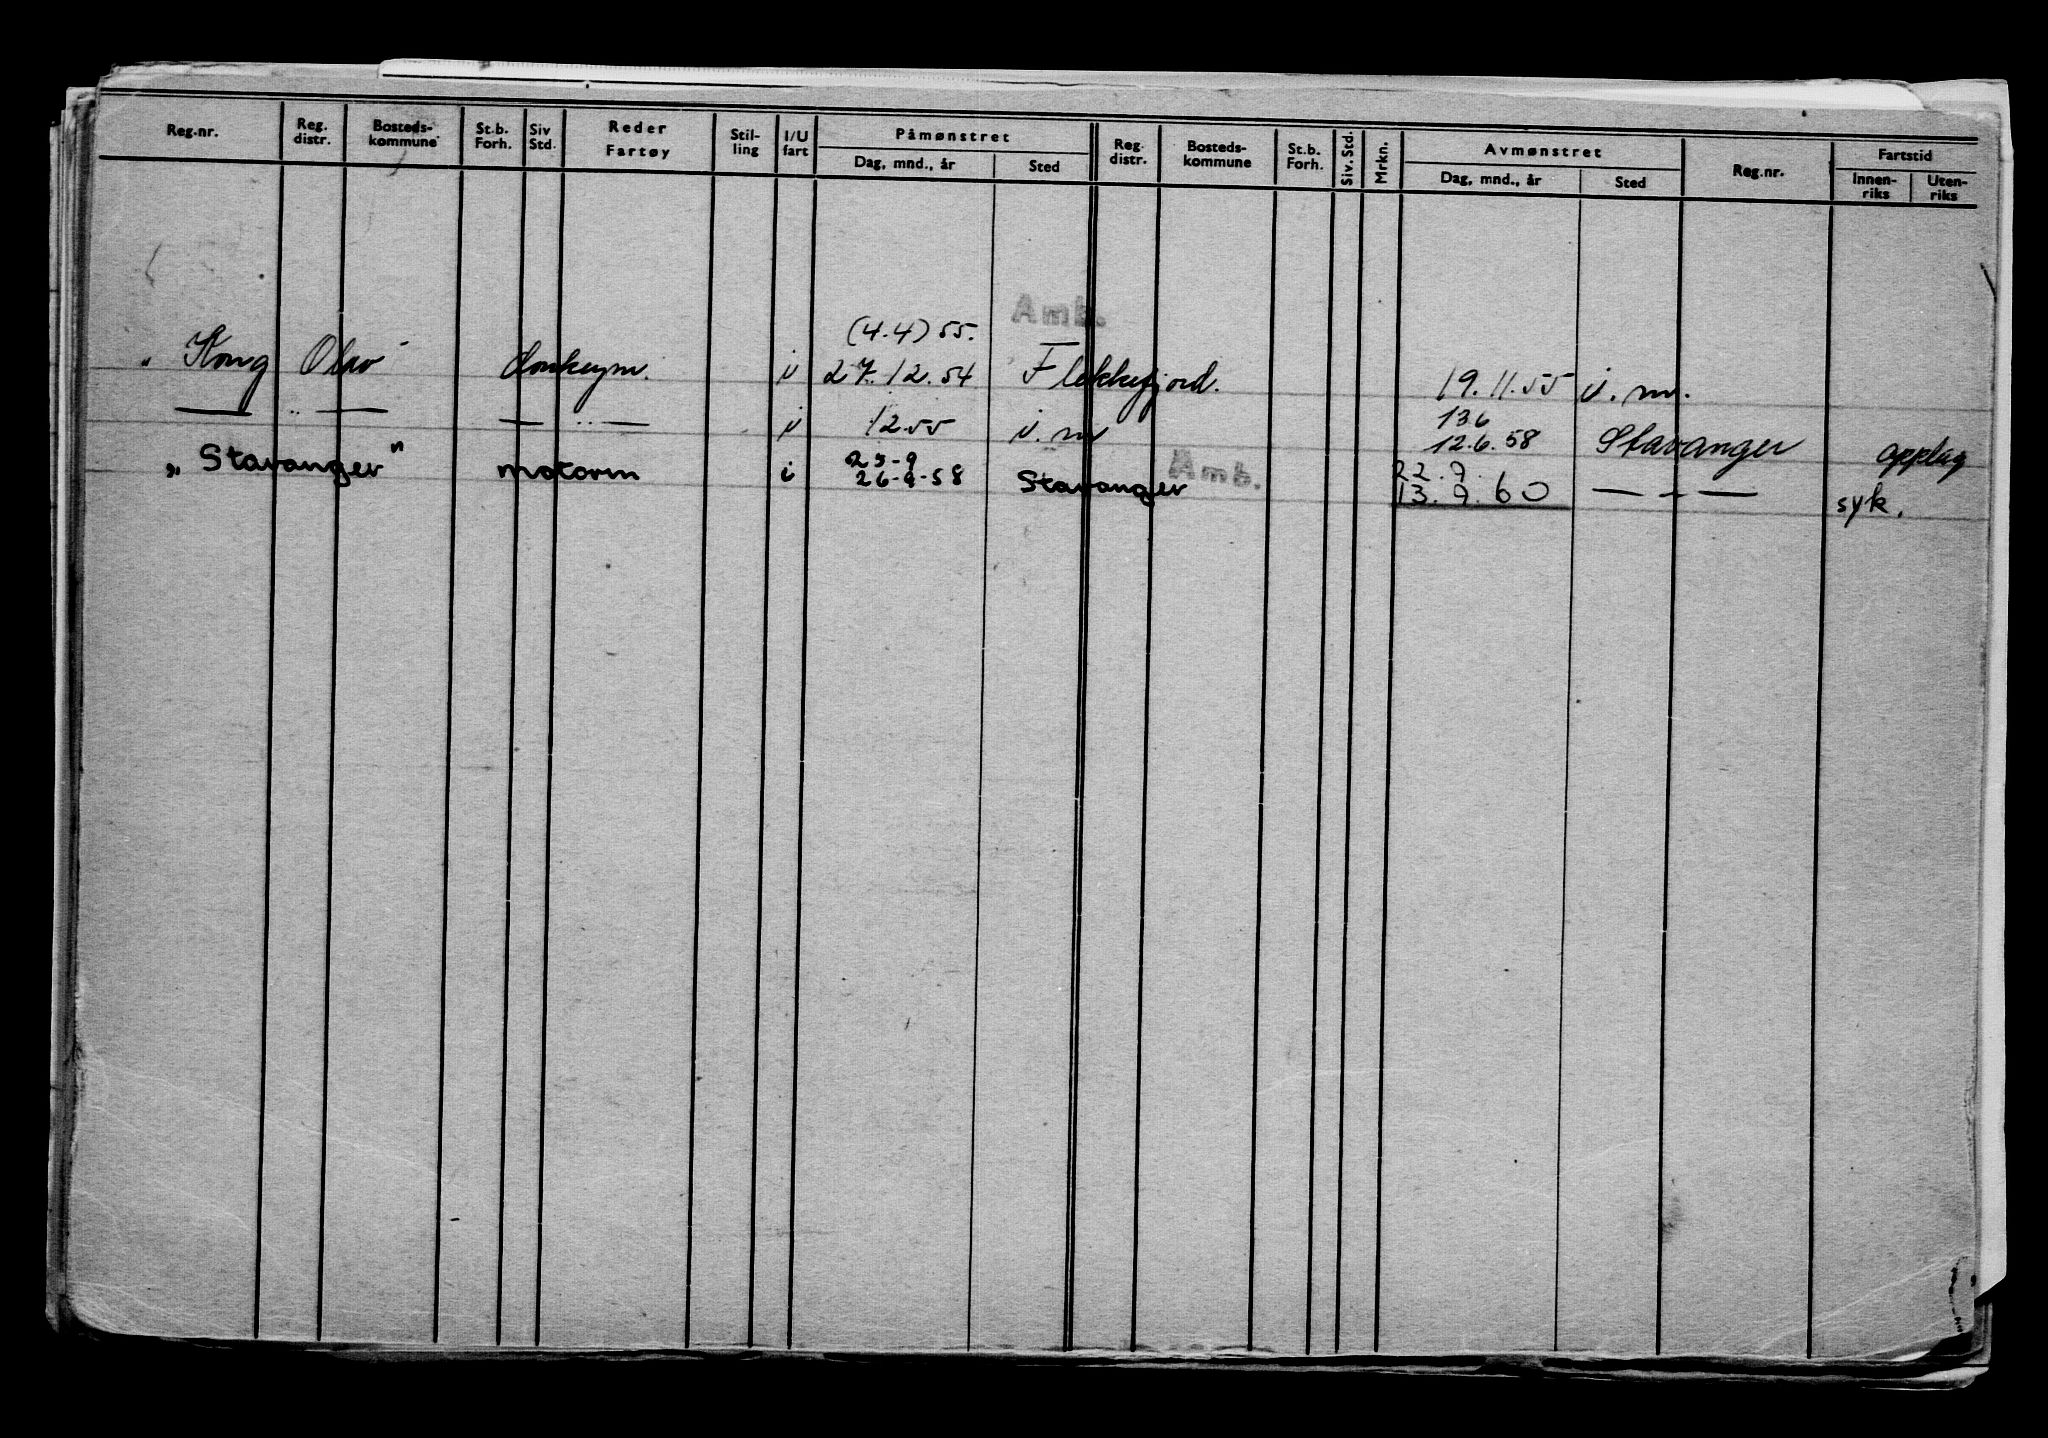 Reg.nr. Reg. distr. Bosteds-kommune St.b. Forh. Siv Std. Reder Fartøy Stil-ling I/U fart Påmønstret Dag, mnd., år Sted Reg. distr. Bosteds-kommune St.b. Forh. Siv. Std. Mrkn. Avmønstret Dag, mnd., år Sted Reg.nr. Fartstid Innen-riks Uten-riks
Amb.
(4.4) 55.
"Kong Olav" donkeym. i 27.12.54 Flekkefjord. 19.11.55 i.m.
— " — — " — i 12.55 i.m 13.6
12.6.58 Stavanger opplag
25-9 Amb. 22.9.
"Stavanger" motorm i 26-9-58 Stavanger 13.9.60 — " — syk.